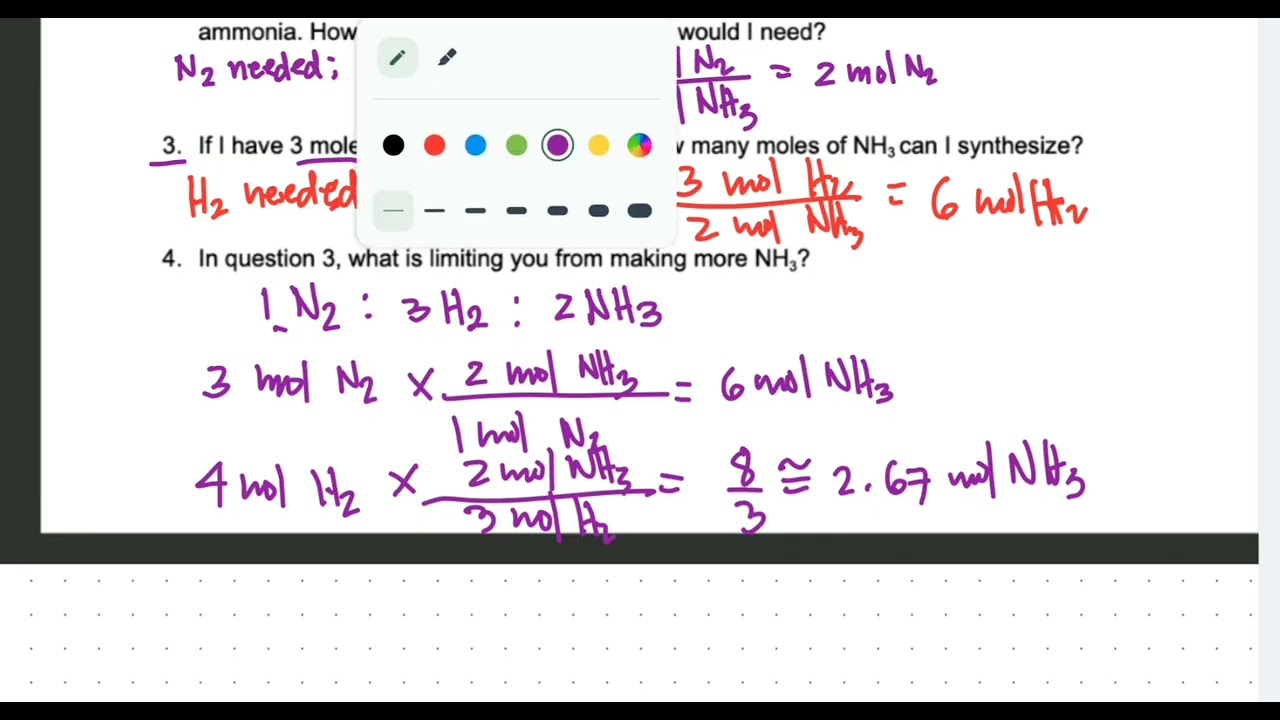 ammonia. How would I need?
N2 needed; 1 N2 / 1 NH3 = 2 mol N2
3. If I have 3 mole many moles of NH3 can I synthesize?
H2 needed 3 mol H2 / 2 mol NH3 = 6 mol H2
4. In question 3, what is limiting you from making more NH3?
1 N2 : 3 H2 : 2 NH3
3 mol N2 × 2 mol NH3 / 1 mol N2 = 6 mol NH3
4 mol H2 × 2 mol NH3 / 3 mol H2 = 8/3 ≅ 2.67 mol NH3